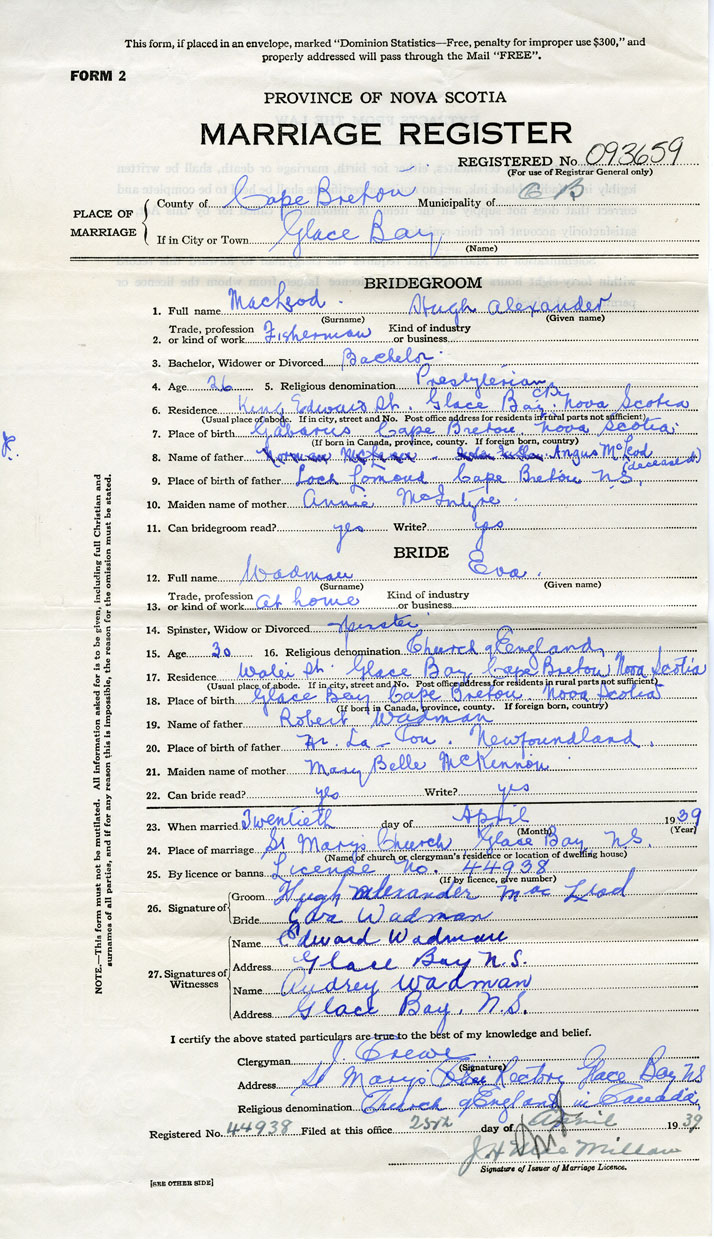 This form, if placed in an envelope, marked "Dominion Statistics—Free, penalty for improper use $300," and
properly addressed will pass through the Mail "FREE".
FORM 2
PROVINCE OF NOVA SCOTIA
MARRIAGE REGISTER
REGISTERED No. 093659
(For use of Registrar General only)
PLACE OF MARRIAGE
County of Cape Breton Municipality of C B
If in City or Town Glace Bay
(Name)
BRIDEGROOM
1. Full name MacLeod Hugh Alexander
(Surname) (Given name)
2. Trade, profession or kind of work Fisherman Kind of industry or business
3. Bachelor, Widower or Divorced Bachelor
4. Age 26 5. Religious denomination Presbyterian
6. Residence King Edward St. Glace Bay CB Nova Scotia
(Usual place of abode. If in city, street and No. Post office address for residents in rural parts not sufficient)
7. Place of birth Gabarus Cape Breton Nova Scotia
(If born in Canada, province, county. If foreign born, country)
8. Name of father Angus McLeod (deceased)
9. Place of birth of father Loch Lomond Cape Breton N.S.
10. Maiden name of mother Annie McIntyre
11. Can bridegroom read? yes Write? yes
BRIDE
12. Full name Wadman Eva
(Surname) (Given name)
13. Trade, profession or kind of work At home Kind of industry or business
14. Spinster, Widow or Divorced Spinster
15. Age 30 16. Religious denomination Church of England
17. Residence St. Glace Bay Cape Breton Nova Scotia
(Usual place of abode. If in city, street and No. Post office address for residents in rural parts not sufficient)
18. Place of birth Glace Bay Cape Breton Nova Scotia
(If born in Canada, province, county. If foreign born, country)
19. Name of father Robert Wadman
20. Place of birth of father Hr. La-Tou. Newfoundland.
21. Maiden name of mother Mary Belle McKennon
22. Can bride read? yes Write? yes
23. When married Twentieth day of April 1939
(Month) (Year)
24. Place of marriage St Marys Church Glace Bay N.S.
(Name of church or clergyman's residence or location of dwelling house)
25. By licence or banns License No. 44938
(If by licence, give number)
26. Signature of
Groom Hugh Alexander MacLeod
Bride Eva Wadman
27. Signatures of Witnesses
Name Edward Wadman
Address Glace Bay N.S.
Name Audrey Wadman
Address Glace Bay, N.S.
I certify the above stated particulars are true to the best of my knowledge and belief.
Clergyman J. Crewe
(Signature)
Address St Marys Rectory Glace Bay NS
Religious denomination Church of England in Canada
Registered No. 44938 Filed at this office 25th day of April 1939
Signature of Issuer of Marriage Licence.
[SEE OTHER SIDE]
NOTE.—This form must not be mutilated. All information asked for is to be given, including full Christian and
surnames of all parties, and if for any reason this is impossible, the reason for the omission must be stated.